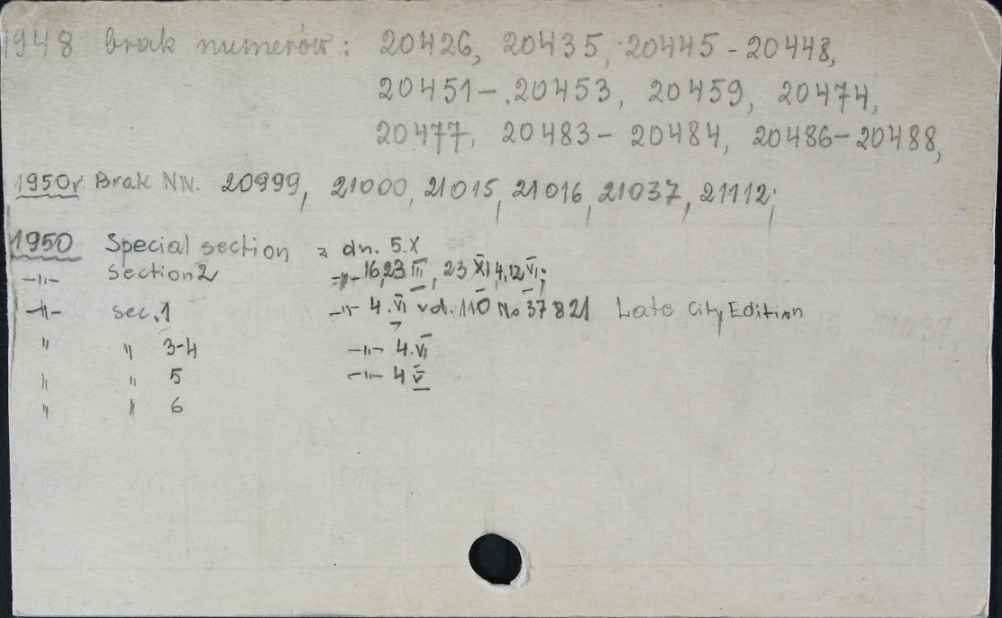 1948 brak numerów: 20426, 20435, 20445-20448,
20451-20453, 20459, 20474,
20477, 20483-20484, 20486-20488,
1950r. Brak NN. 20999, 21000, 21015, 21016, 21037, 21112,
1950 Special section z dn. 5.X
-"- Section 2 -"- 16,23 III, 23 XI, 4,12 VI,
-"- sec. 1 -"- 4. VI vol. 110 No 37821 Late City Edition
" " 3-4 -"- 4. VI
" " 5 -"- 4 V
" " 6